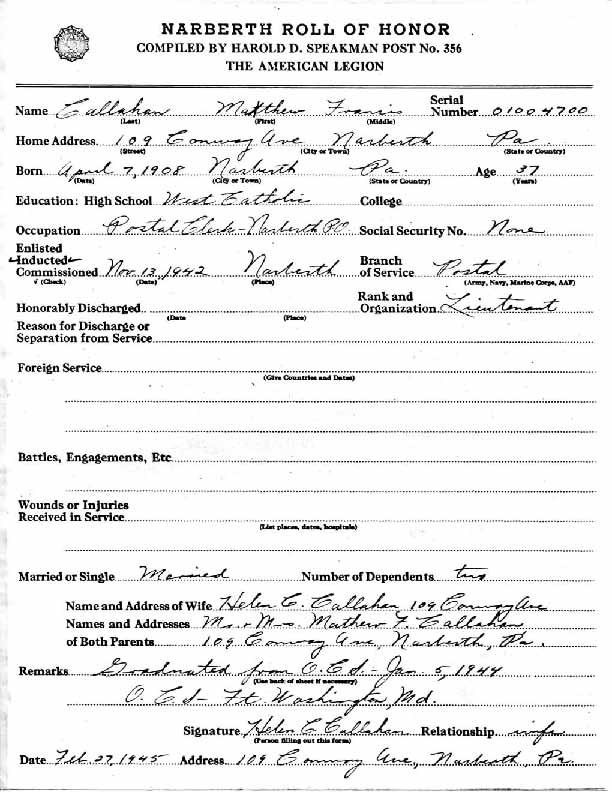 NARBERTH ROLL OF HONOR
COMPILED BY HAROLD D. SPEAKMAN POST No. 356
THE AMERICAN LEGION
Name Callahan Matthew Francis Serial Number 01004700
(Last) (First) (Middle)
Home Address 109 Conway Ave Narberth Pa.
(Street) (City or Town) (State or Country)
Born April 7, 1908 Narberth Pa. Age 37
(Date) (City or Town) (State or Country) (Years)
Education: High School West Catholic College
Occupation Postal Clerk - Narberth PO Social Security No. None
Enlisted
✓Inducted✓
Commissioned Nov. 13, 1942 Narberth Branch of Service Postal
√ (Check) (Date) (Place) (Army, Navy, Marine Corps, AAF)
Honorably Discharged Rank and Organization Lieutenant
(Date (Place)
Reason for Discharge or
Separation from Service
Foreign Service
(Give Countries and Dates)
Battles, Engagements, Etc
Wounds or Injuries
Received in Service
(List places, dates, hospitals)
Married or Single Married Number of Dependents two
Name and Address of Wife Helen C. Callahan 109 Conway Ave
Names and Addresses Mr. & Mrs. Mathew F. Callahan
of Both Parents 109 Conway Ave, Narberth, Pa.
Remarks Graduated from O.C.S. - Jan 5, 1944
(Use back of sheet if necessary)
O.C.S - Ft. Washington, Md.
Signature Helen C Callahan Relationship wife
(Person filling out this form)
Date Feb. 27, 1945 Address 109 Conway Ave, Narberth, Pa